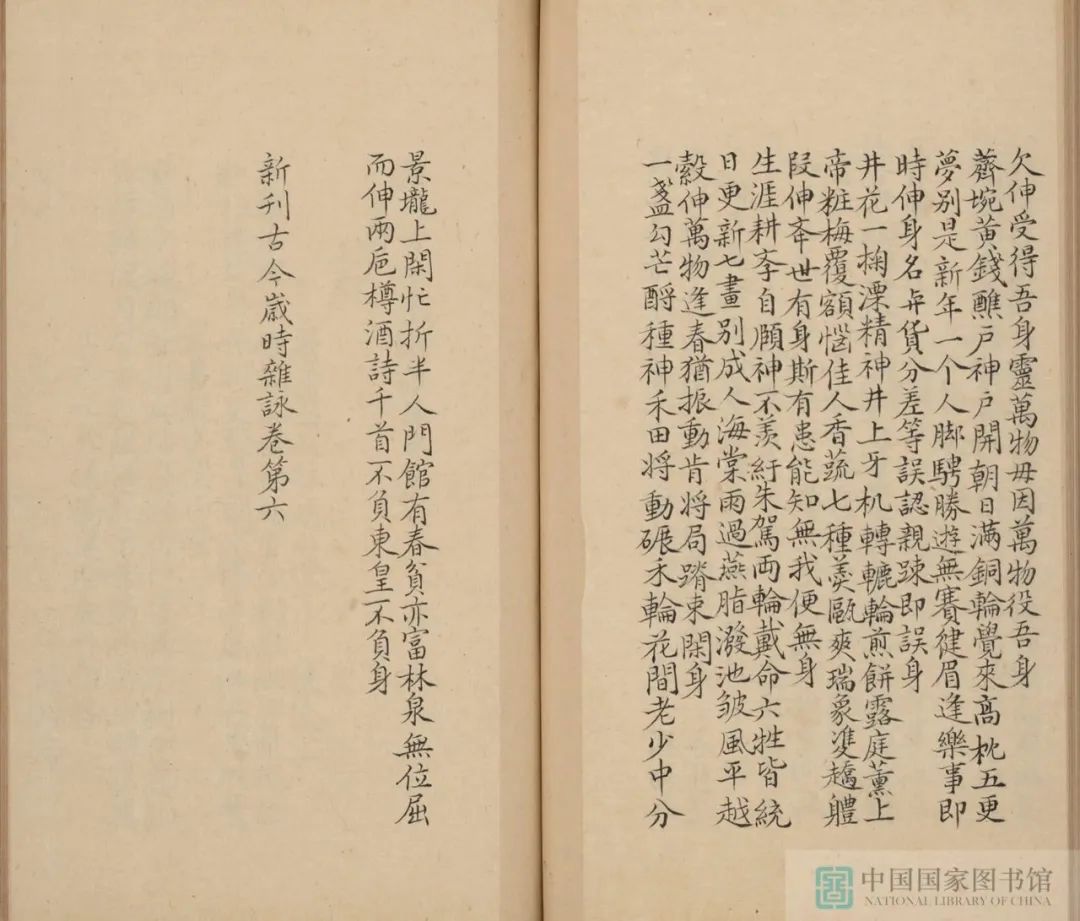 欠伸受得吾身靈萬物毋因萬物役吾身
薺埦黄錢醮戸神戸開朝日滿銅輪覺來高枕五更
夢别是新年一个人脚騁勝遊無賽健眉逢樂事即
時伸身名弁貨分差等誤認親踈即誤身
井花一掬溧精神井上牙机轉轆輪煎餅露庭薰上
帝粧梅覆額惱佳人香蔬七種羮甌爽瑞象雙趫軆
叚伸夲世有身斯有患能知無我便無身
生涯耕斈自頤神不羨紆朱駕両輪戴命六牲皆統
日更新七畫别成人海棠雨過燕脂潑池皱風平越
縠伸萬物逢春猶振動肯将局蹐束閑身
一盞勾芒酹種神禾田将動碾禾輪花間老少中分
景壠上閑忙折半人門館有春貧亦富林泉無位屈
而伸兩巵樽酒詩千首不負東皇不負身
新刊古今嵗時雜詠巻第六
中国国家图书馆
NATIONAL LIBRARY OF CHINA